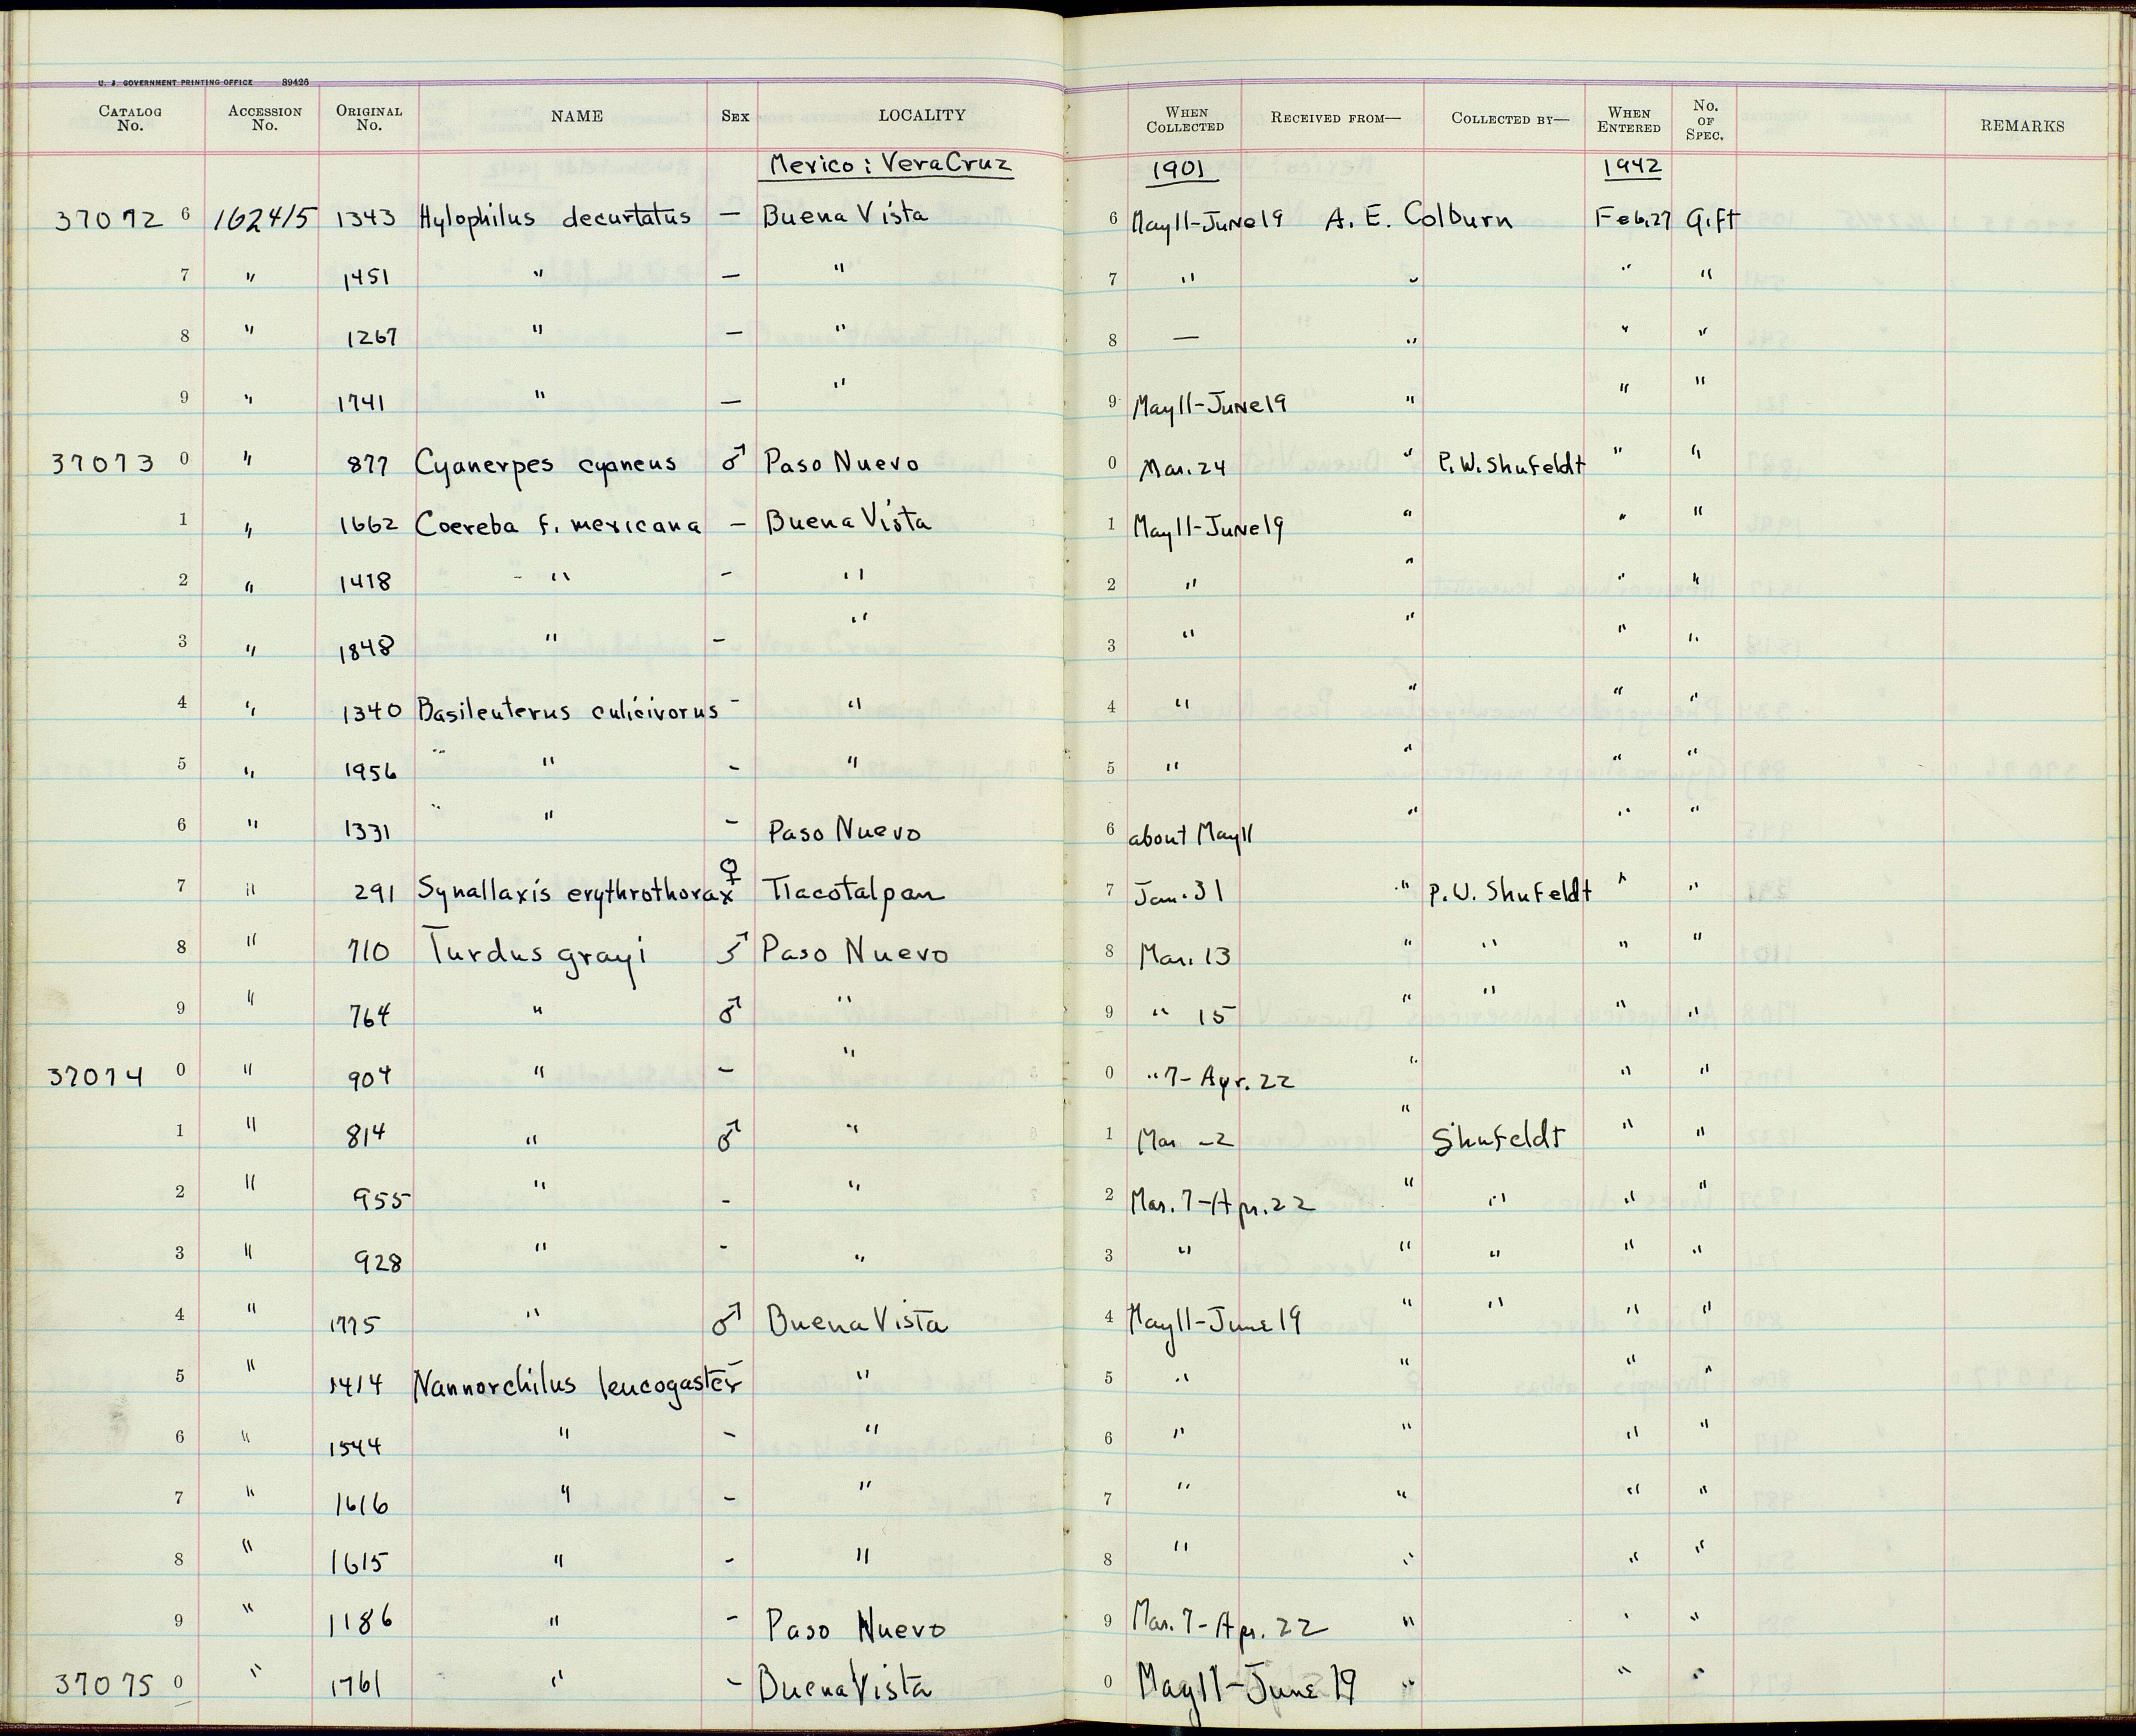 U. S. GOVERNMENT PRINTING OFFICE 39426
CATALOG No. ACCESSION No. ORIGINAL No. NAME SEX LOCALITY WHEN COLLECTED RECEIVED FROM— COLLECTED BY— WHEN ENTERED No. OF SPEC. REMARKS
Mexico: VeraCruz 1901 1942
37072 6 162415 1343 Hylophilus decurtatus – Buena Vista 6 May11-June19 A. E. Colburn Feb.27 Gift
7 " 1451 " – " 7 " " " "
8 " 1267 " – " 8 – " " "
9 " 1741 " – " 9 May11-June19 " " "
37073 0 " 877 Cyanerpes cyaneus ♂ Paso Nuevo 0 Mar. 24 " P.W. Shufeldt " "
1 " 1662 Coereba f. mexicana – Buena Vista 1 May11-June19 " " "
2 " 1478 " – " 2 " " " "
3 " 1848 " – " 3 " " " "
4 " 1340 Basileuterus culicivorus – " 4 " " " "
5 " 1956 " " – " 5 " " " "
6 " 1331 " " – Paso Nuevo 6 about May11 " " "
7 " 291 Synallaxis erythrothorax ♀ Tlacotalpan 7 Jan. 31 " P.W. Shufeldt " "
8 " 710 Turdus grayi ♂ Paso Nuevo 8 Mar. 13 " " " "
9 " 764 " ♂ " 9 " 15 " " " "
37074 0 " 904 " – " 0 " 7- Apr. 22 " " "
1 " 814 " ♂ " 1 Mar " Shufeldt " "
2 " 955 " – " 2 Mar. 7-Apr. 22 " " " "
3 " 928 " – " 3 " " " " "
4 " 1775 " ♂ Buena Vista 4 May11-June19 " " " "
5 " 1414 Nannorchilus leucogaster – " 5 " " " "
6 " 1544 " – " 6 " " " "
7 " 1616 " – " 7 " " " "
8 " 1615 " – " 8 " " " "
9 " 1186 " – Paso Nuevo 9 Mar. 7-Apr. 22 " " "
37075 0 " 1761 " – Buena Vista 0 May11-June 19 " " "